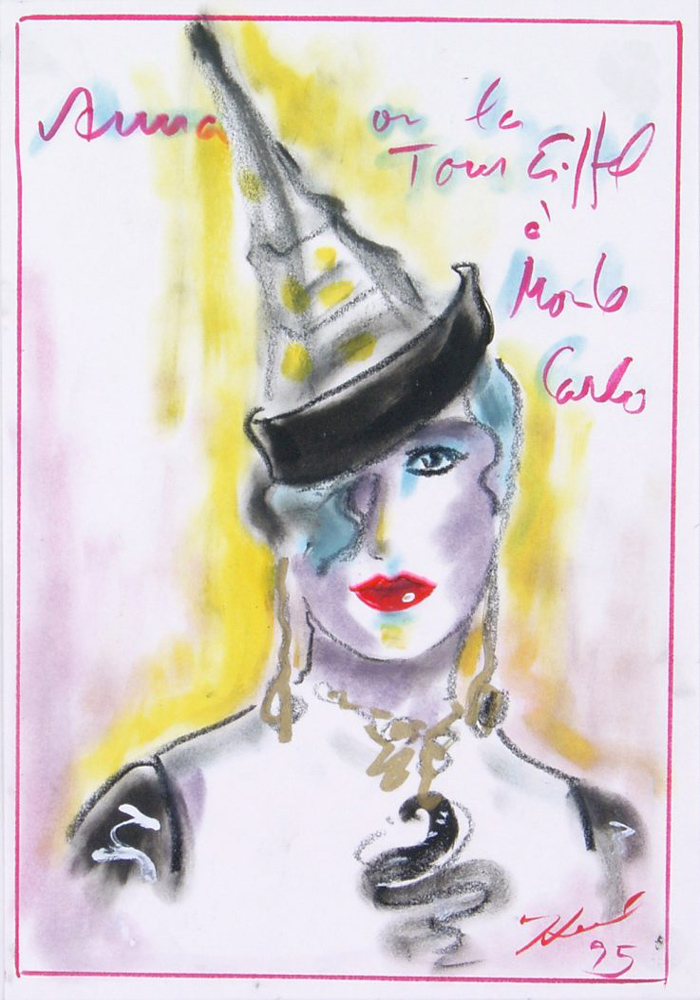 Anna
ou la
Tour Eiffel
à
Monte
Carlo
95